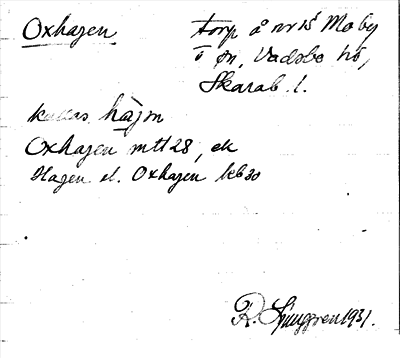 Oxhagen
torp å nr 15 Moby
i sn, Vadsbo hd,
Skarab. l.
kallas hàjn
Oxhagen mtl 28, ek
Hagen el. Oxhagen kb 30
R. Ljunggren 1931.